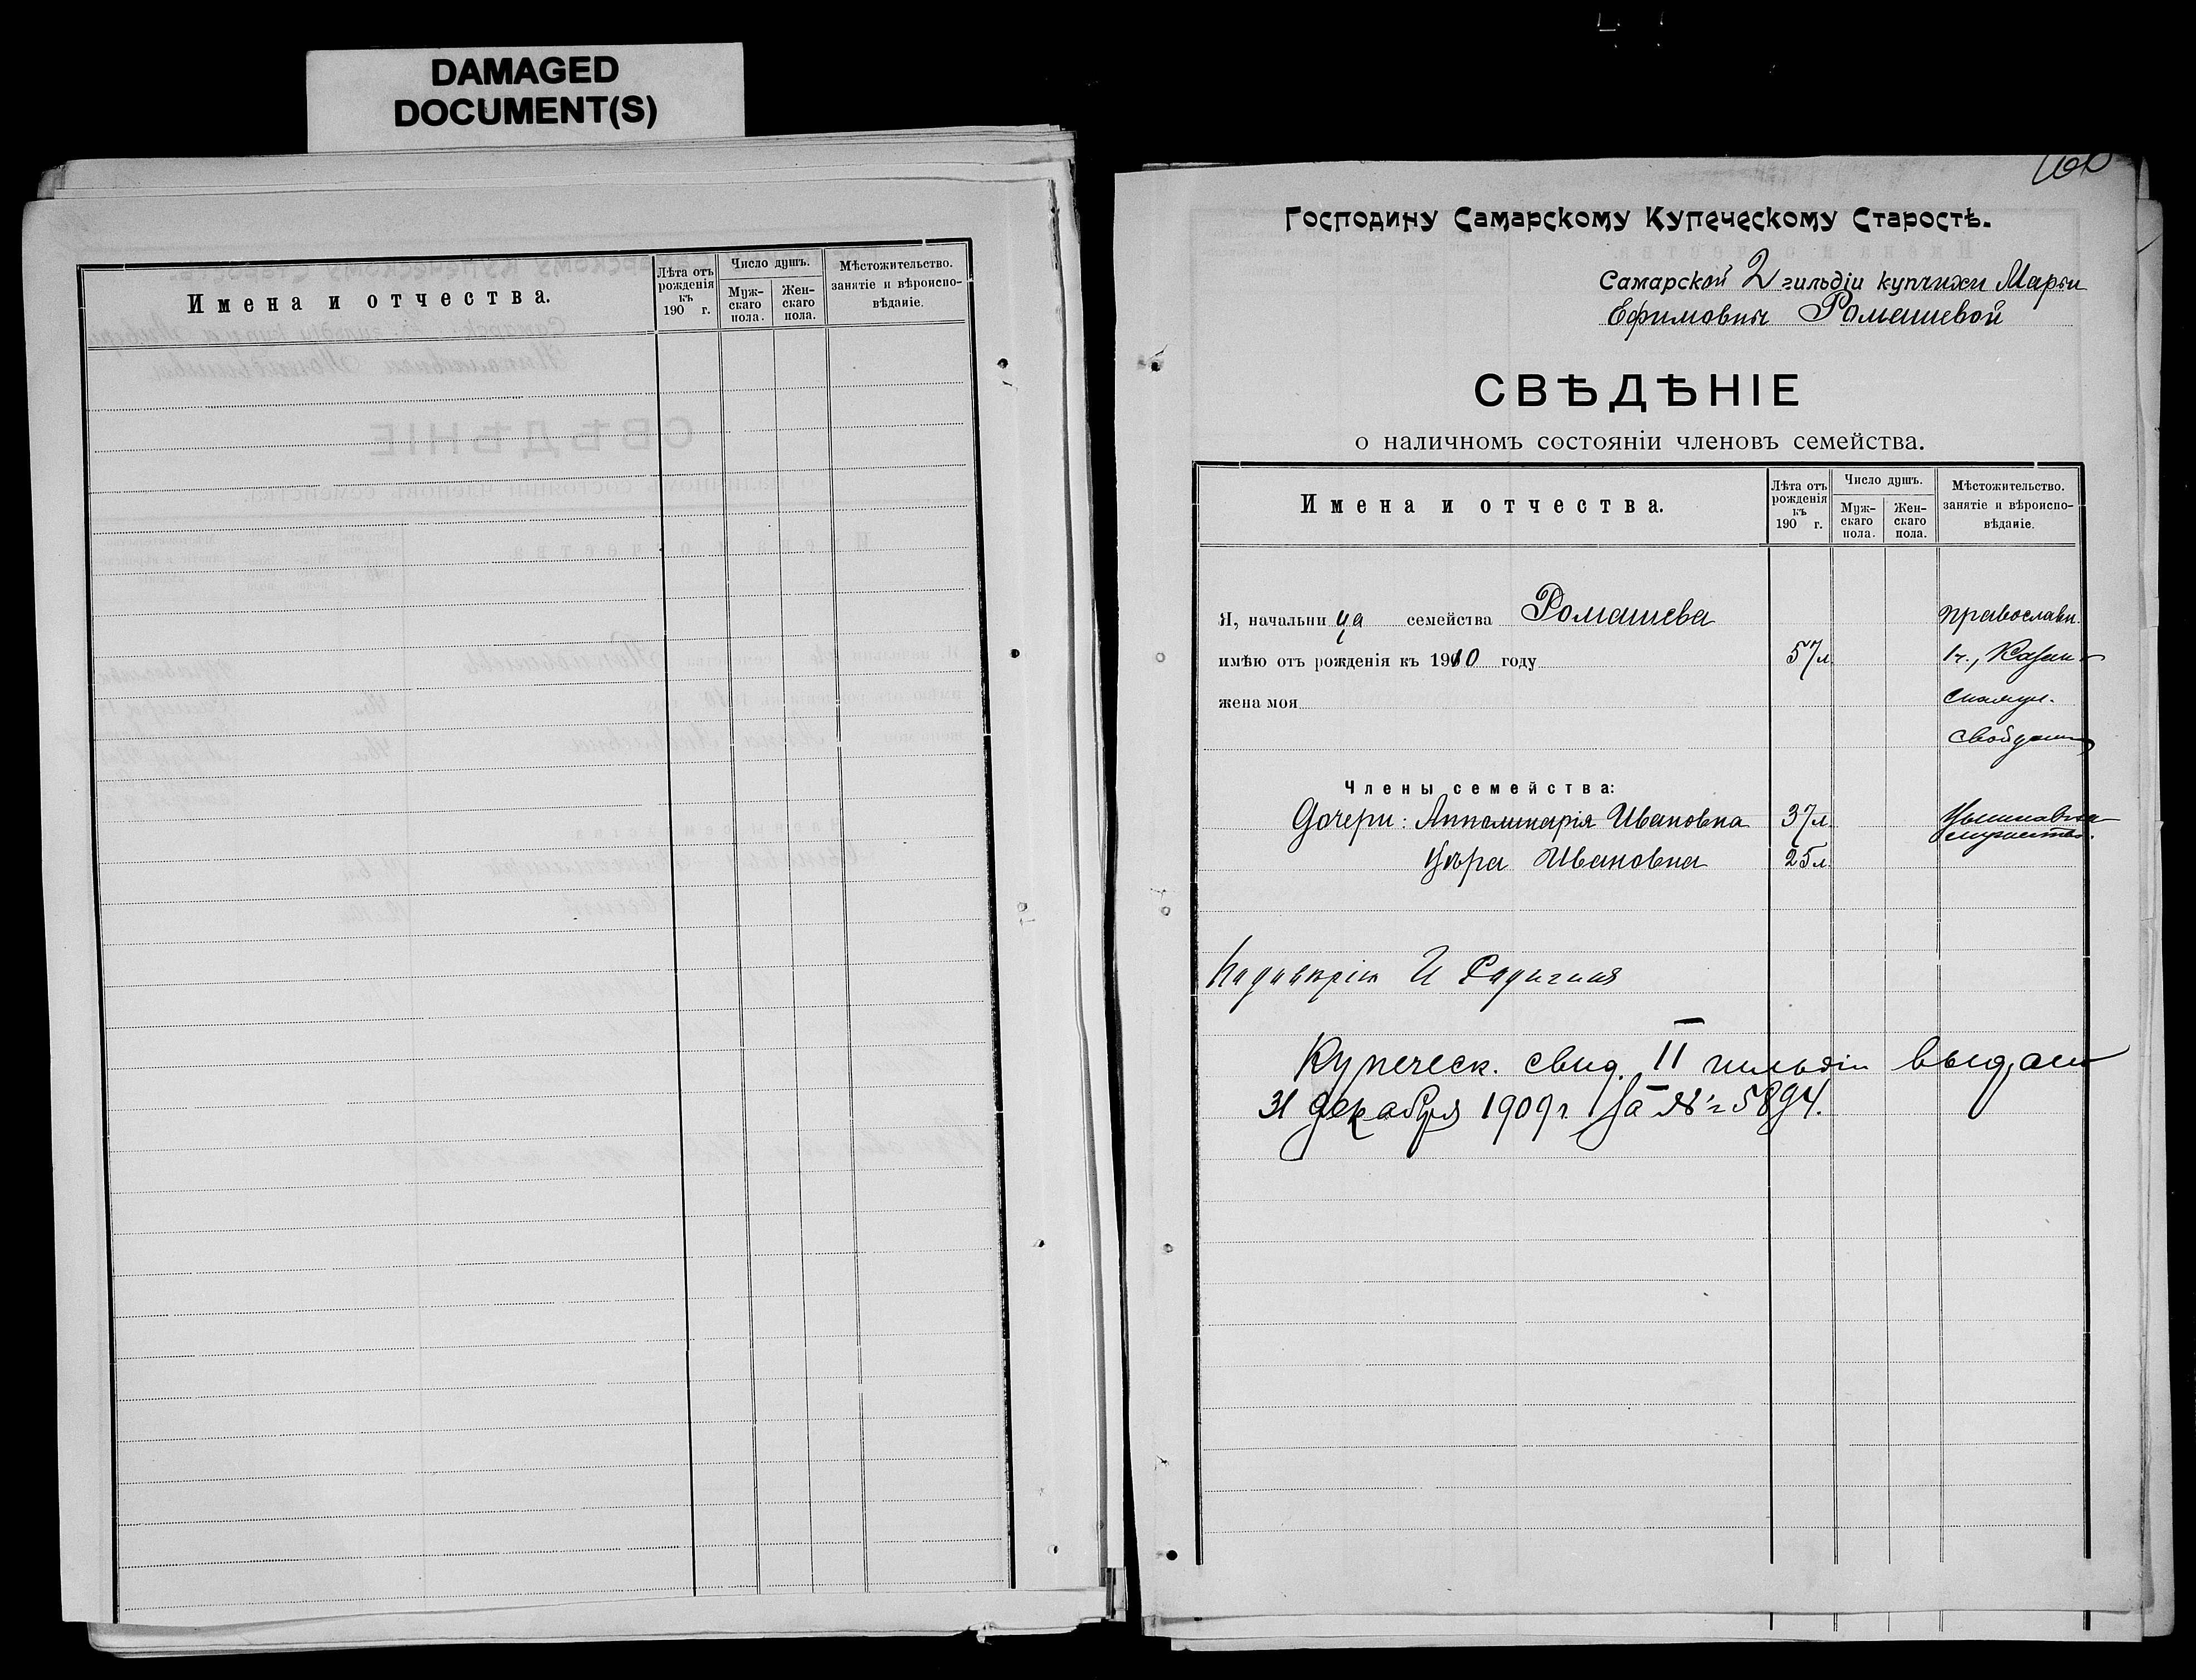 DAMAGED
DOCUMENT(S)
Имена и отчества.
Лѣта отъ рожденія къ 190 г.
Число душъ.
Муж-скаго пола.
Жен-скаго пола.
Мѣстожительство. занятіе и вѣроиспо-вѣданіе.
160
Господину Самарскому Купеческому Старостѣ.
Самарской 2 гильдіи купчихи Марьи
Ефимовны Ромашевой
СВѢДѢНІЕ
о наличномъ состояніи членовъ семейства.
Имена и отчества.
Лѣта отъ рожденія къ 190 г.
Число душъ.
Муж-скаго пола.
Жен-скаго пола.
Мѣстожительство. занятіе и вѣроиспо-вѣданіе.
Я, начальница семейства Ромашева православн.
имѣю отъ рожденія къ 1910 году 57 л. 1 ч., Казан-
жена моя ская ул.
свой домъ
Члены семейства:
Дочери: Апполинарія Ивановна 37 л.
Вѣра Ивановна 25 л.
Купеческ. свид. II гильдіи выдан
31 декабря 1909 г. за № 5894.